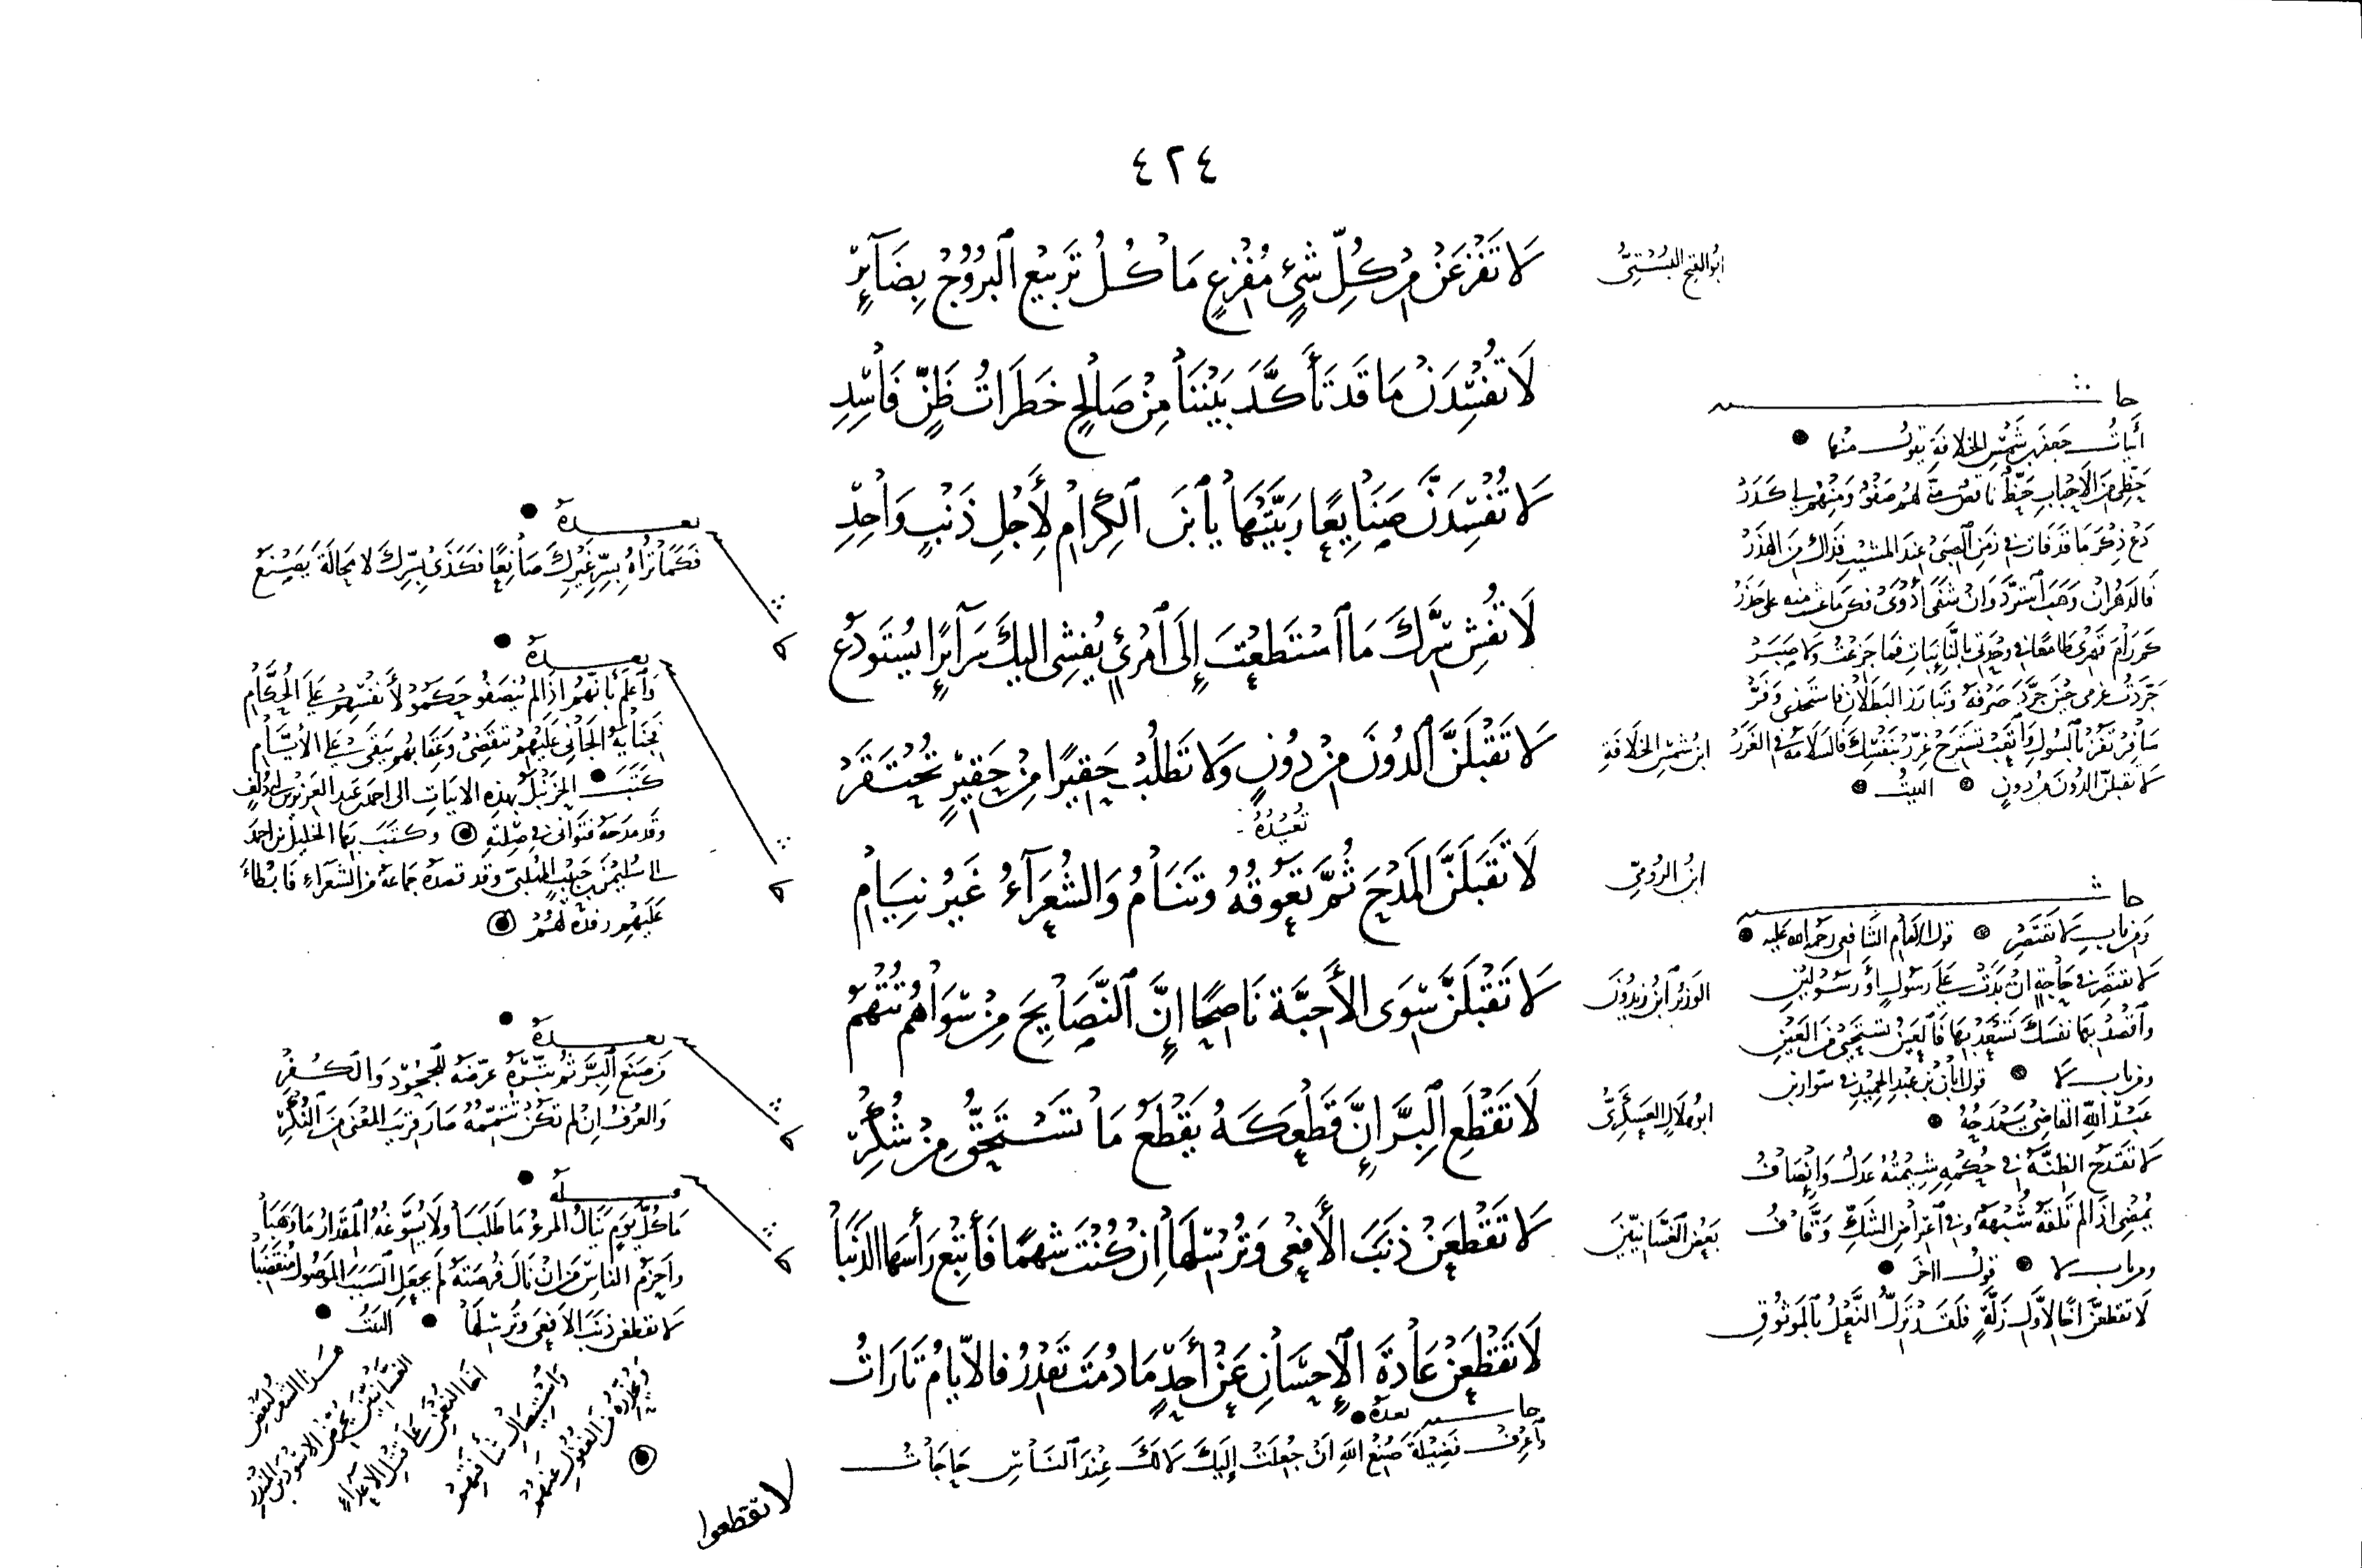 ٤٢٤
أبو الفتح البستي
لا تَفْزَعَنْ مِنْ كُلِّ شَيْءٍ مُفْزِعٍ مَا كُلُّ تَرْبِيعِ الْبُرُوجِ بِضَائِرِ
لَا تُفْسِدَنْ مَا قَدْ تَأَكَّدَ بَيْنَنَا مِنْ صَالِحٍ خَطَرَاتُ ظَنٍّ فَاسِدِ
لَا تُفْسِدَنَّ صَنَايِعًا رَبَّيْتَهَا يَا ابْنَ الْكِرَامِ لِأَجْلِ ذَنْبٍ وَاحِدِ
لَا تُفْشِ سِرَّكَ مَا اسْتَطَعْتَ إِلَى امْرِئٍ يُفْشِي إِلَيْكَ سَرَآئِرًا يُسْتَوْدَعُ
ابن شمس الخلافة
لَا تَقْبَلَنَّ الدُّونَ مِنْ دُونٍ وَلَا تَطْلُبْ حَقِيرًا مِنْ حَقِيرٍ تُحْتَقَرْ
بَعْدَهُ
ابن الرومي
لَا تَقْبَلَنَّ الْمَدْحَ ثُمَّ تَعُوقُهُ وَتَنَامُ وَالشُّعَرَآءُ غَيْرُ نِيَامِ
الوزير ابن زيدون
لَا تَقْبَلَنَّ سِوَى الْأَحِبَّةِ نَاصِحًا إِنَّ النَّصَايِحَ مِنْ سِوَاهُمْ تُتَّهَمْ
أبو هلال العسكري
لَا تَقْطَعِ الْبِرَّ إِنَّ قَطْعَكَهُ يَقْطَعُ مَا تَسْتَحِقُّ مِنْ شُكْرِ
بعض الغسانيين
لَا تَقْطَعَنْ ذَنَبَ الْأَفْعَى وَتُرْسِلَهَا إِنْ كُنْتَ شَهْمًا فَأَتْبِعْ رَأْسَهَا الذَّنَبَا
لَا تَقْطَعَنْ عَادَةَ الْإِحْسَانِ عَنْ أَحَدٍ مَا دُمْتَ تَقْدِرُ فَالْأَيَّامُ تَارَاتُ
حاشية بعده
وَاعْرِفْ فَضِيلَةَ صُنْعِ اللهِ أَنْ جُعِلَتْ إِلَيْكَ لَا لَكَ عِنْدَ النَّاسِ حَاجَاتُ
لا تقطعوا
حاشية
أبيات جعفر بن شمس الخلافة يقول منها
حظي من الأحباب حظ ناقص منّي لهم صفو ومنهم لي كدر
دع ذكر ما قد فات في زمن الصبى عند المشيب فذاك من الهذر
فالدهر إن وهب استرد وإن شفى أدوى فكن ما عشت منه على حذر
كم رام قهري طامعا في وحدتي بالنائبات فما جزعت ولا صبر
جردت عزمي حين جرد صرفه وتبارز البطلان فاستخذى وفر
سافر تفز بالسول واتعب تسترح غرر بنفسك فالسلامة في الغرر
لا تقبلن الدون من دون البيت
حاشية
ومن باب لا تقتصر قول الإمام الشافعي رحمه الله عليه
لا تقتصر في حاجة إن بدت على رسول أو رسولين
واقصد بها نفسك تسعد بها فالعين تستحيي من العين
ومن باب لا قول أبان بن عبد الحميد في سوار بن
عبد الله القاضي يمدحه
لا تقدح الظنة في حكمه شيمته عدل وإنصاف
يمضي إذا لم تلقه شبهة وفي اعتراض الشك وقاف
ومن باب لا قول آخر
لا تقطعن أخا لأول زلة فلقد تزل النعل بالموثوق
بعده
فكما تراه بسر غيرك صانعا فكذى بسرك لا محالة يصنع
بعده
واعلم بأنهم إذا لم ينصفوا حكموا لأنفسهم على الحكام
فجناية الجاني عليهم تنقضي وعقابهم يبقى على الأيام
كتب الحزنبل بهذه الأبيات إلى أحمد بن عبد العزيز بن أبي دلف
وقد مدحه فتوانى في صلته وكتب بها الخليل بن أحمد
إلى سليمن بن حبيب المهلبي وقد قصده جماعة من الشعراء فأبطأ
عليهم رفده لهم
بعده
من صنع البر ثم بتره عرضه للجحود والكفر
والعرف إن لم تكن تتممه صار قريب المعنى من النكر
قبله
ما كل يوم ينال المرء ما طلبا ولا يسوغه المقدار ما وهبا
وأحزم الناس من إن نال فرصته لم يجعل السبب الموصول منقضبا
لا تقطعن ذنب الأفعى وترسلها البيت
هذا الشعر لبعض
الغسانيين يحرض الأسود بن المنذر
أخا النعمن على قتل الأعداء
واستيصال شأفتهم
ويحذره من العفو عنهم